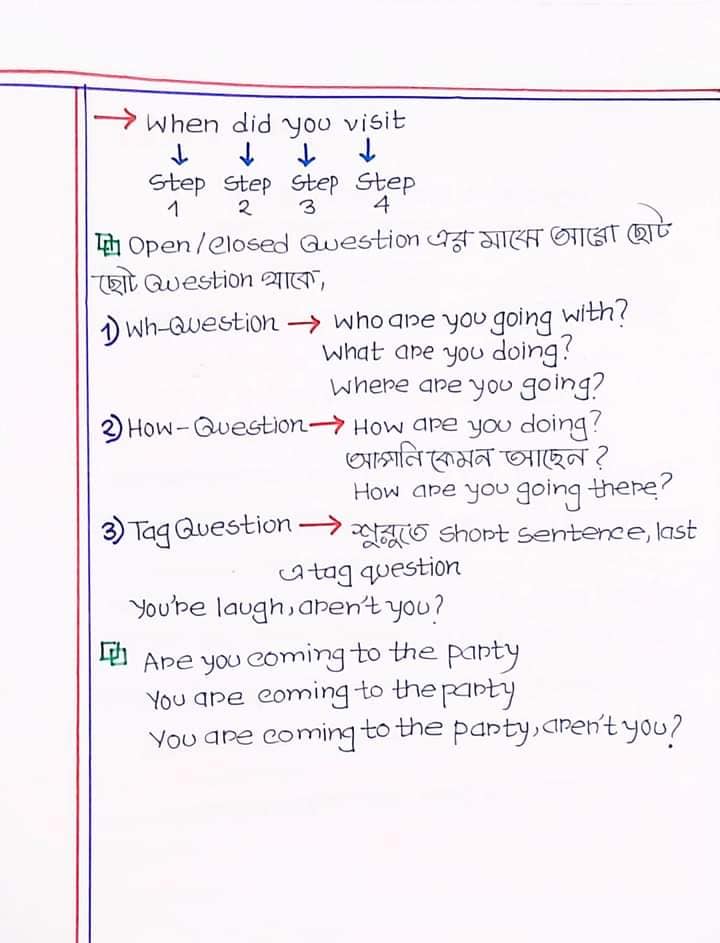 → When did you visit
↓ ↓ ↓ ↓
Step Step Step Step
1 2 3 4
Open/Closed Question এর মাঝে আরো ছোট
ছোট Question থাকে,
1) Wh-Question → Who are you going with?
What are you doing?
Where are you going?
2) How-Question → How are you doing?
আপনি কেমন আছেন?
How are you going there?
3) Tag Question → শুরুতে short sentence, last
এ tag question
You're laugh, aren't you?
Are you coming to the party
You are coming to the party
You are coming to the party, aren't you?